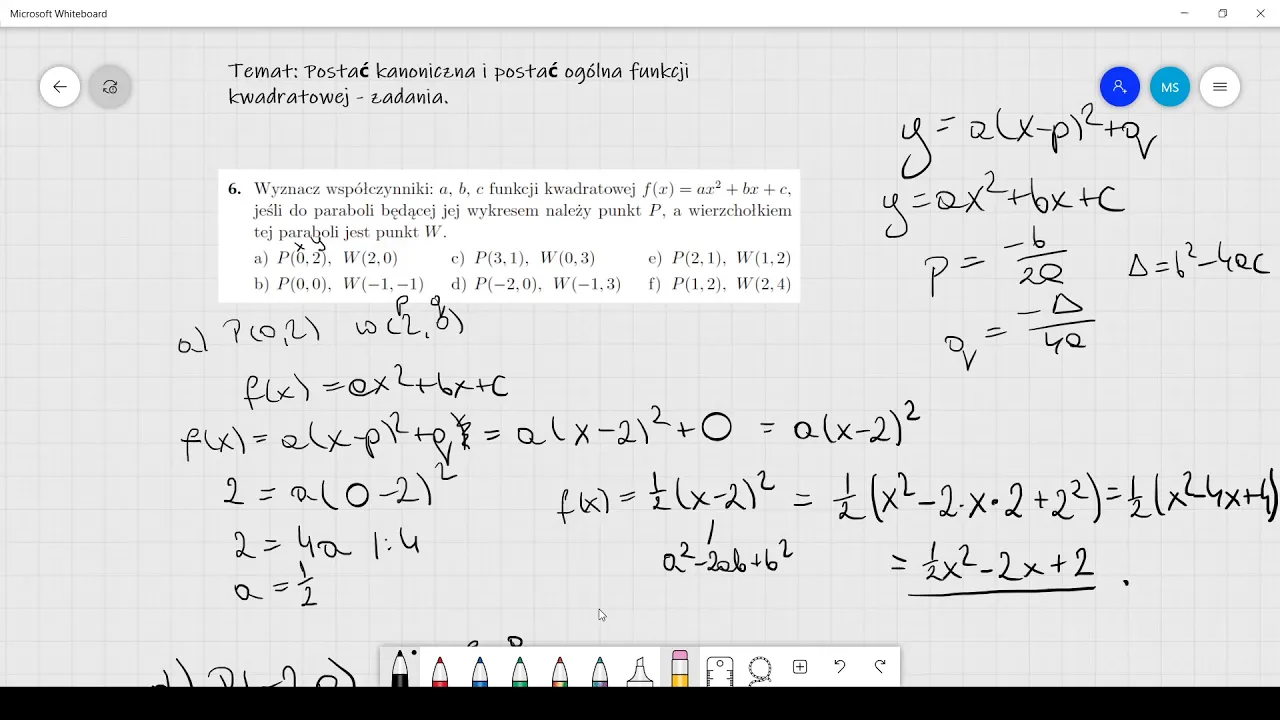 Microsoft Whiteboard
Temat: Postać kanoniczna i postać ogólna funkcji
kwadratowej - zadania.
MS
6. Wyznacz współczynniki: a, b, c funkcji kwadratowej f(x) = ax² + bx + c,
jeśli do paraboli będącej jej wykresem należy punkt P, a wierzchołkiem
tej paraboli jest punkt W.
x y
a) P(0, 2), W(2, 0) c) P(3, 1), W(0, 3) e) P(2, 1), W(1, 2)
b) P(0, 0), W(−1, −1) d) P(−2, 0), W(−1, 3) f) P(1, 2), W(2, 4)
y = a(x-p)²+q
y = ax²+bx+c
p = -b/2a Δ = b²-4ac
q = -Δ/4a
p q
a) P(0,2) W(2,0)
f(x) = ax²+bx+c
f(x) = a(x-p)²+q = a(x-2)²+0 = a(x-2)²
2 = a(0-2)²
2 = 4a |:4
a = 1/2
f(x) = 1/2(x-2)² = 1/2(x²-2·x·2+2²) = 1/2(x²-4x+4)
a²-2ab+b²
= 1/2x²-2x+2 .
d) P(-2,0)